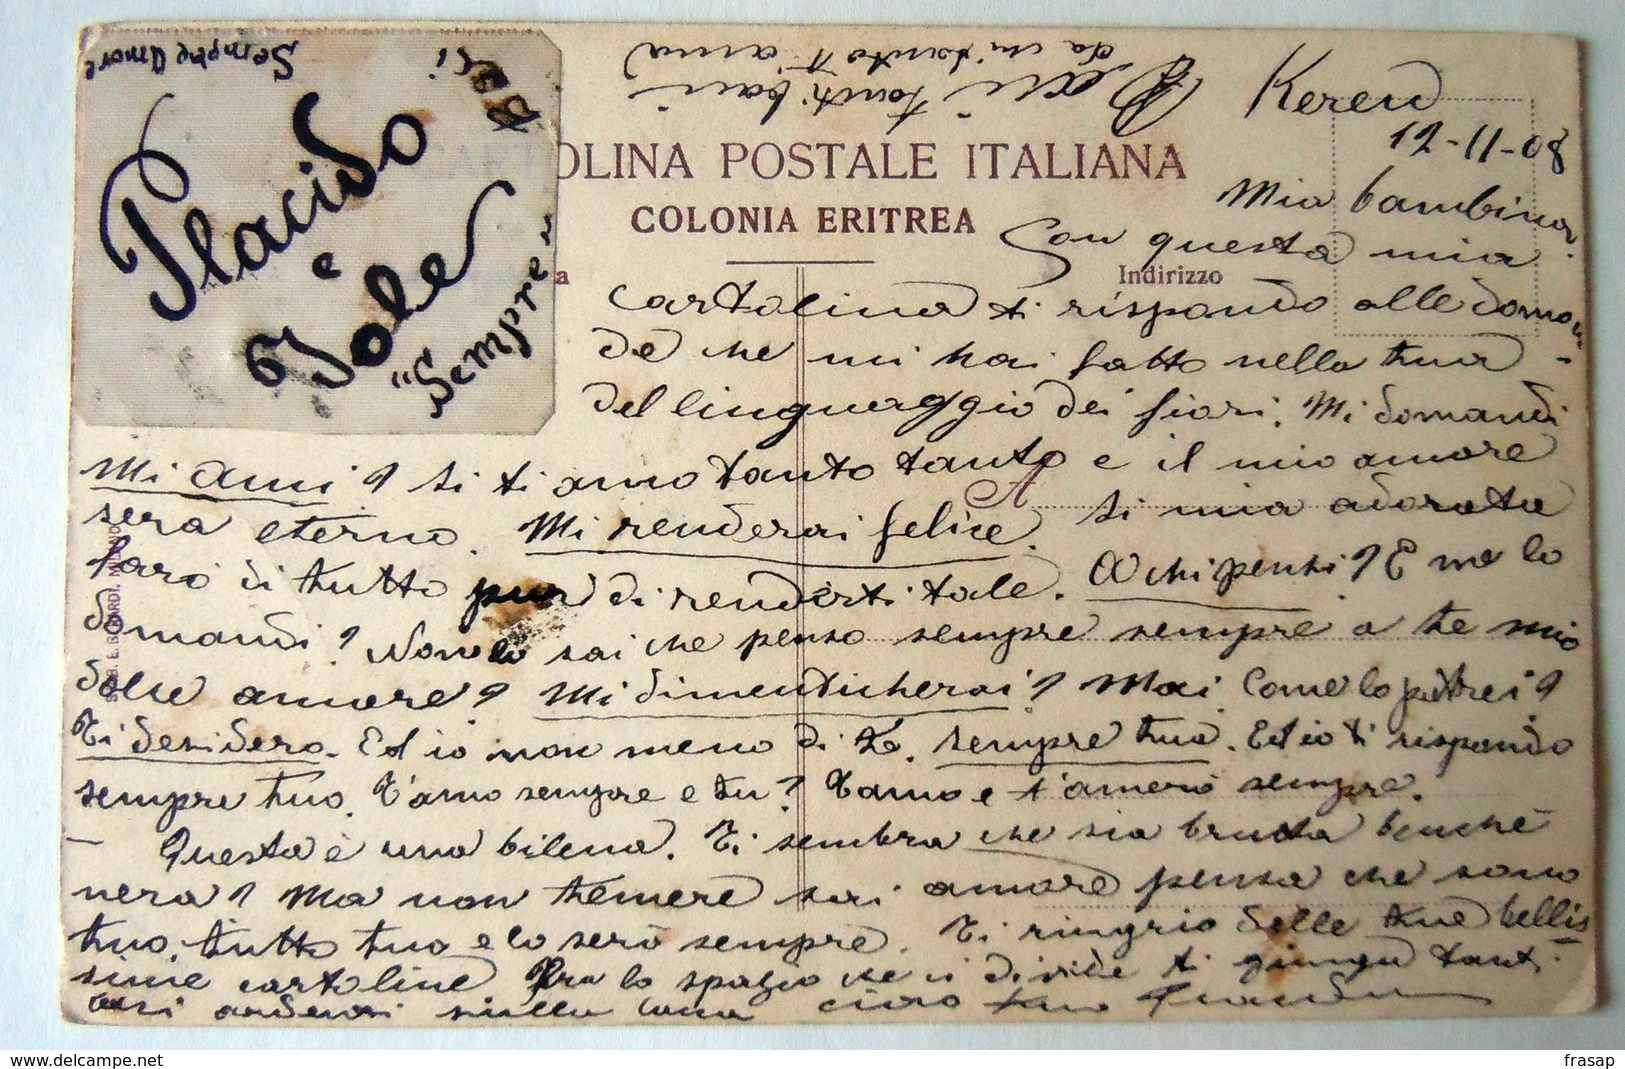 Sempre amore
Placido
e
Jole
"Sempre"
Baci
da chi tanto t'ama
Keren
12-11-08
OLINA POSTALE ITALIANA
COLONIA ERITREA
a
Indirizzo
Mia bambina
Con questa mia
cartolina ti rispondo alle doman
de che mi hai fatto nella tua
del linguaggio dei fiori. Mi domandi
Mi ami? Si ti amo tanto tanto e il mio amore
A
sera eterno. Mi renderai felice. Si mia adorata
faro di tutto pur di renderti tale. A chi pensi? E me lo
domandi? Non lo sai che penso sempre sempre a te mio
dolce amore? Mi dimenticherai? Mai. Come lo potrei?
Ti desidero. Ed io non meno di te. Sempre tua. Ed io ti rispondo
sempre tuo. T'amo sempre e tu? T'amo e t'amerò sempre.
Questa è una bilena. Ti sembra che sia brutta benche
nera? Ma non temere sai amore pensa che sono
tuo, tutto tuo e lo serò sempre. Ti ringrio delle tue bellis
sime cartoline. Pra lo spazio che ci divide ti giungu tanti
baci ardenti sulla ciao tuo